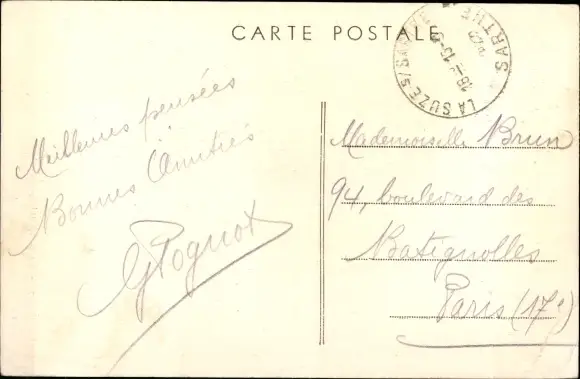 CARTE POSTALE
LA SUZE S/SARTHE
SARTHE
Meilleures pensées
Bonnes Amitiés
Mademoiselle Brun
94, boulevard des
Batignolles
Paris (17e)